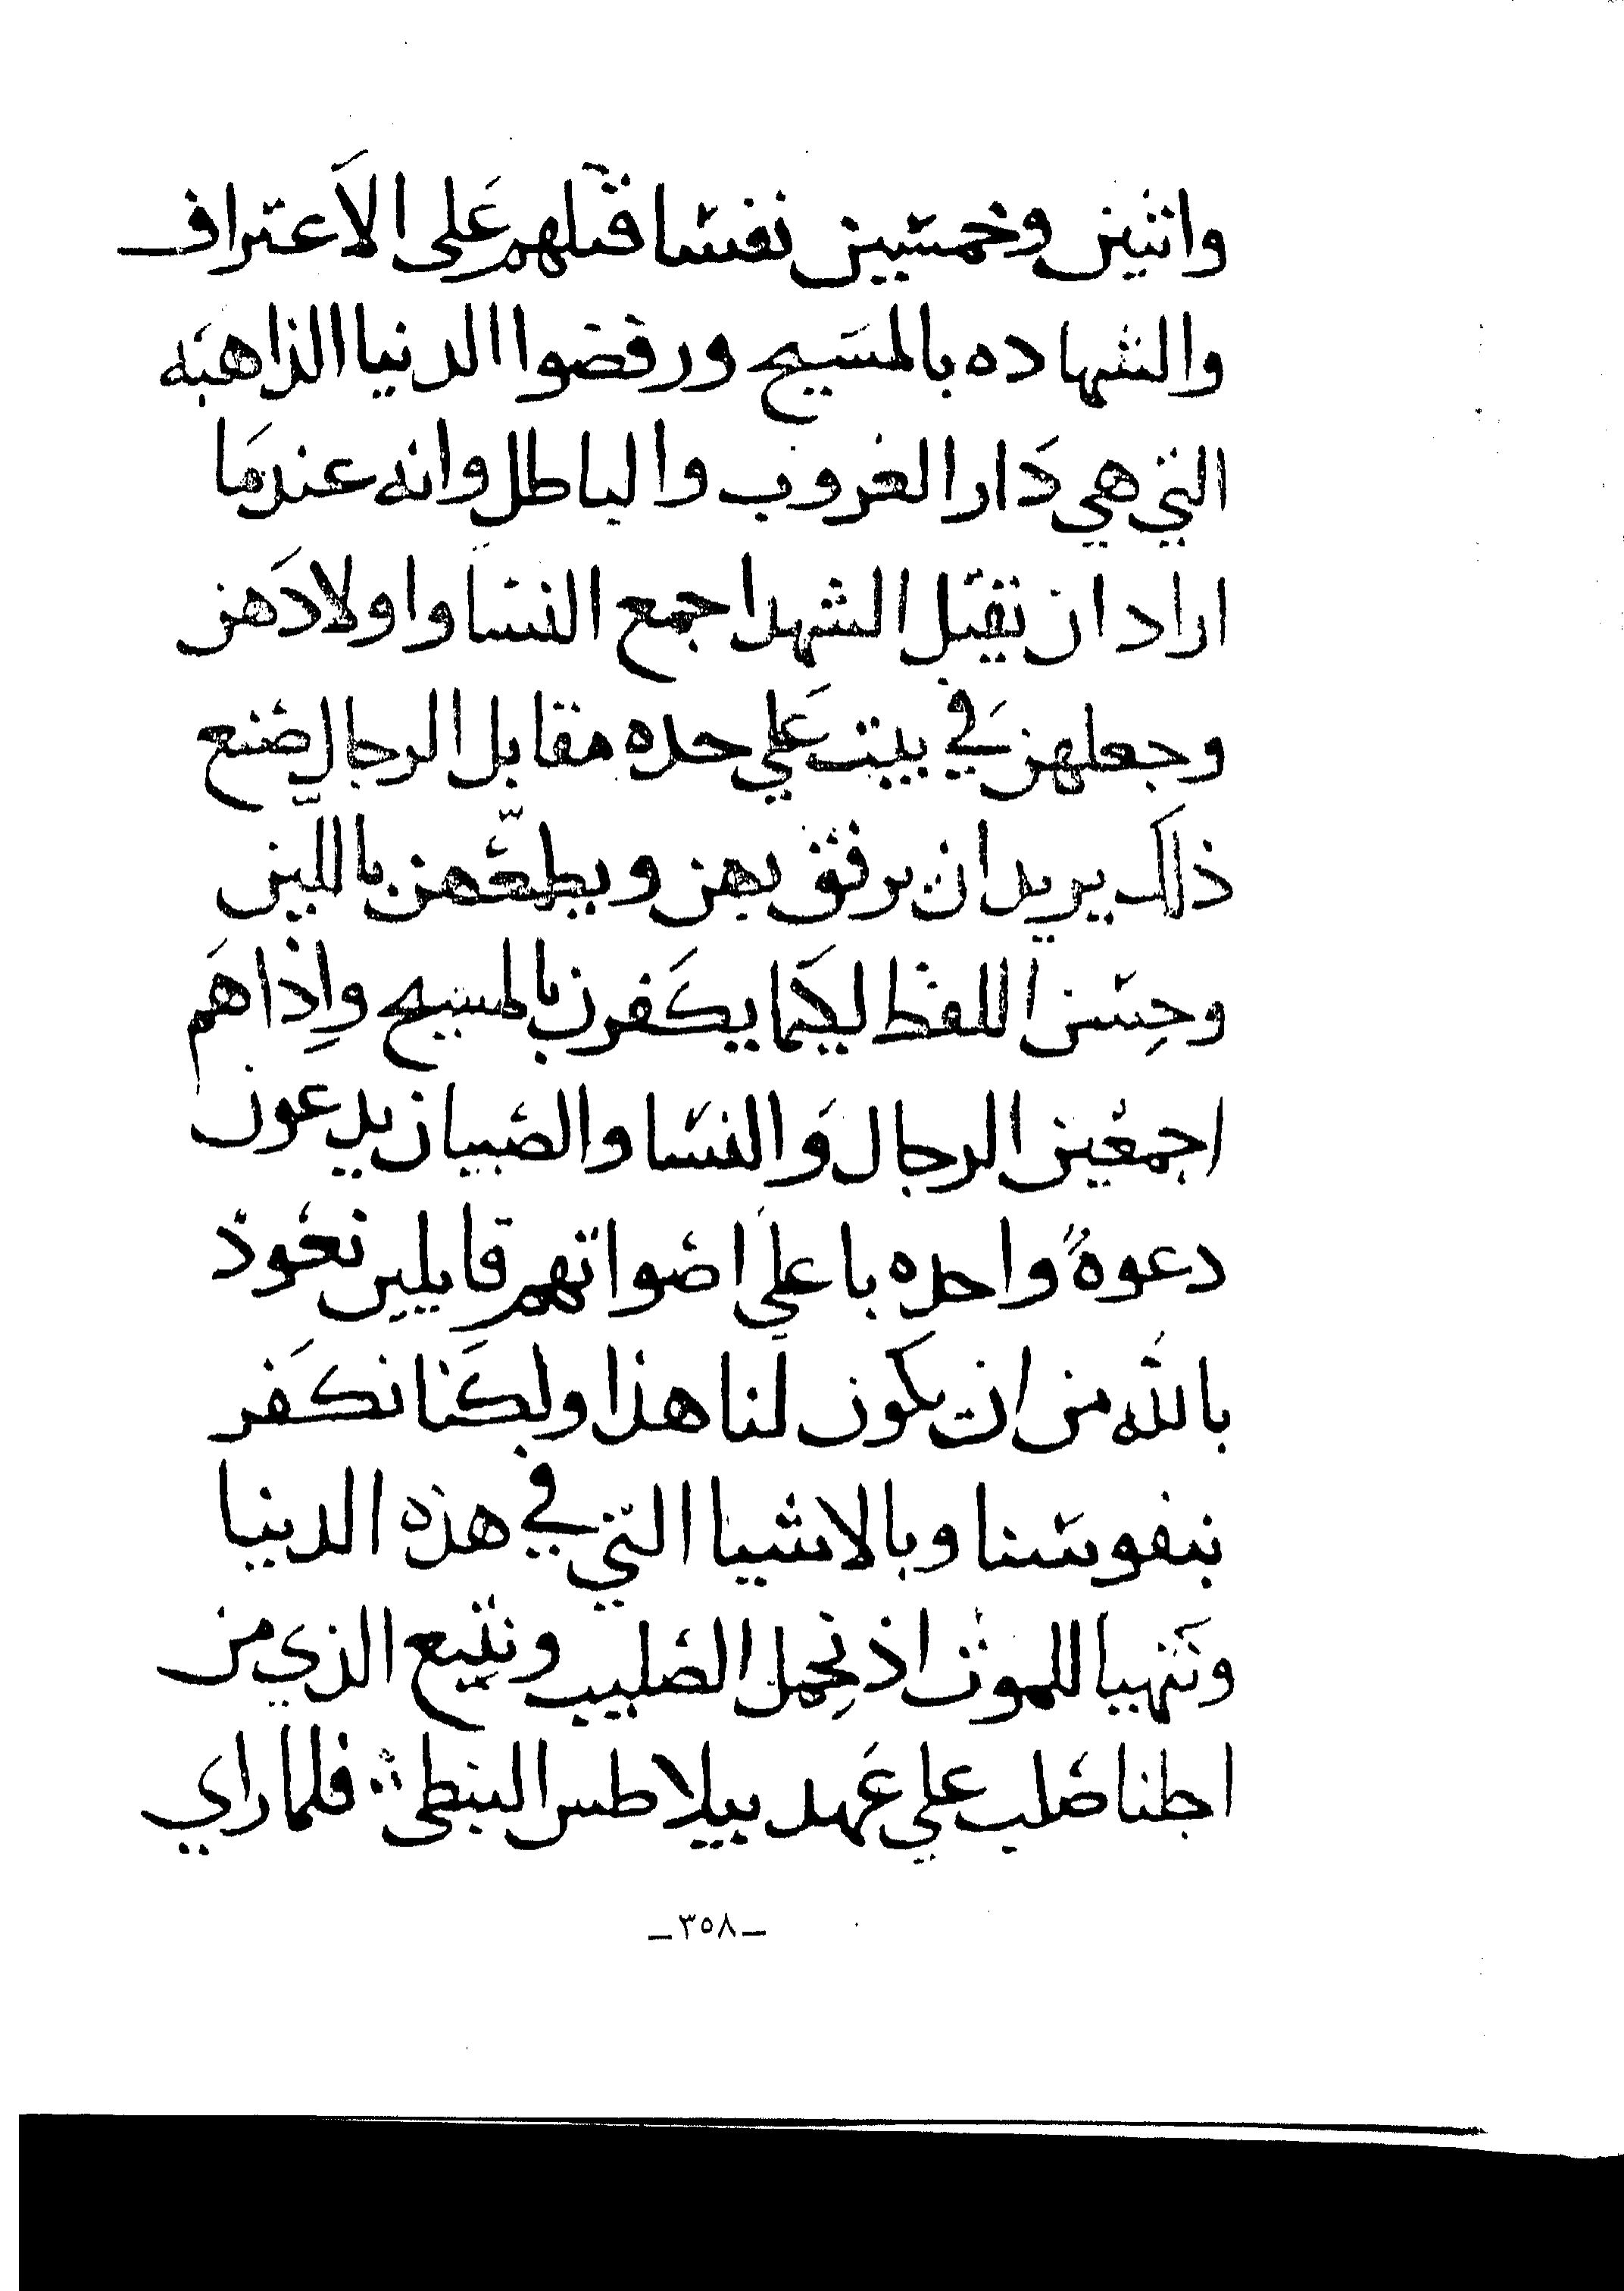 واثنين وخمسين نفسا قتلهم على الاعتراف
والشهاده بالمسيح ورفضوا الدنيا الذاهبه
التي هي دار الغروب والباطل وانه عندما
اراد ان يقبل الشهدا جمع النسا واولادهن
وجعلهن في بيت علي حده مقابل الرجال صنع
ذلك يريد ان يرفق بهن ويطمعهن باللين
وحِسن اللفظ لكيما يكفرن بالمسيح واِذا هم
اجمعين الرجال والنسا والصبيان يدعون
دعوةً واحده باعلي اصواتهم قايلين نعوذ
بالله من ان يكون لنا هذا ولكننا نكفر
بنفوسنا وبالاشيا التي في هذه الدنيا
ونتهيا للموت اذ نحِمل الصليب ونتبع الذي من
اجلنا صلب علي عهد بيلاطس البنطي ۞ فلما راي
ـ٣٥٨ـ